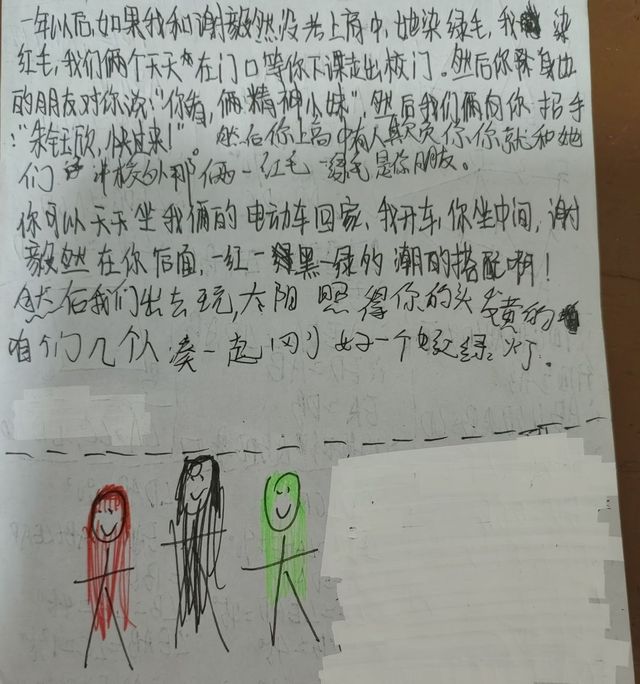 一年以后,如果我和谢毅然没考上高中,她染绿毛,我染
红毛,我们俩个天天在门口等你下课走出校门。然后你身边
的朋友对你说:"你看,俩精神小妹",然后我们俩向你招手
:"朱钰欣,快过来!"。然后你上高中有人欺负你你就和她
们说校外那俩一红毛一绿毛是你朋友。
你可以天天坐我俩的电动车回家,我开车,你坐中间,谢
毅然在你后面,一红一黑一绿的潮的搭配啊!
然后我们出去玩,太阳照得你的头发黄的
咱们几个人凑一起刚好一个红绿灯.